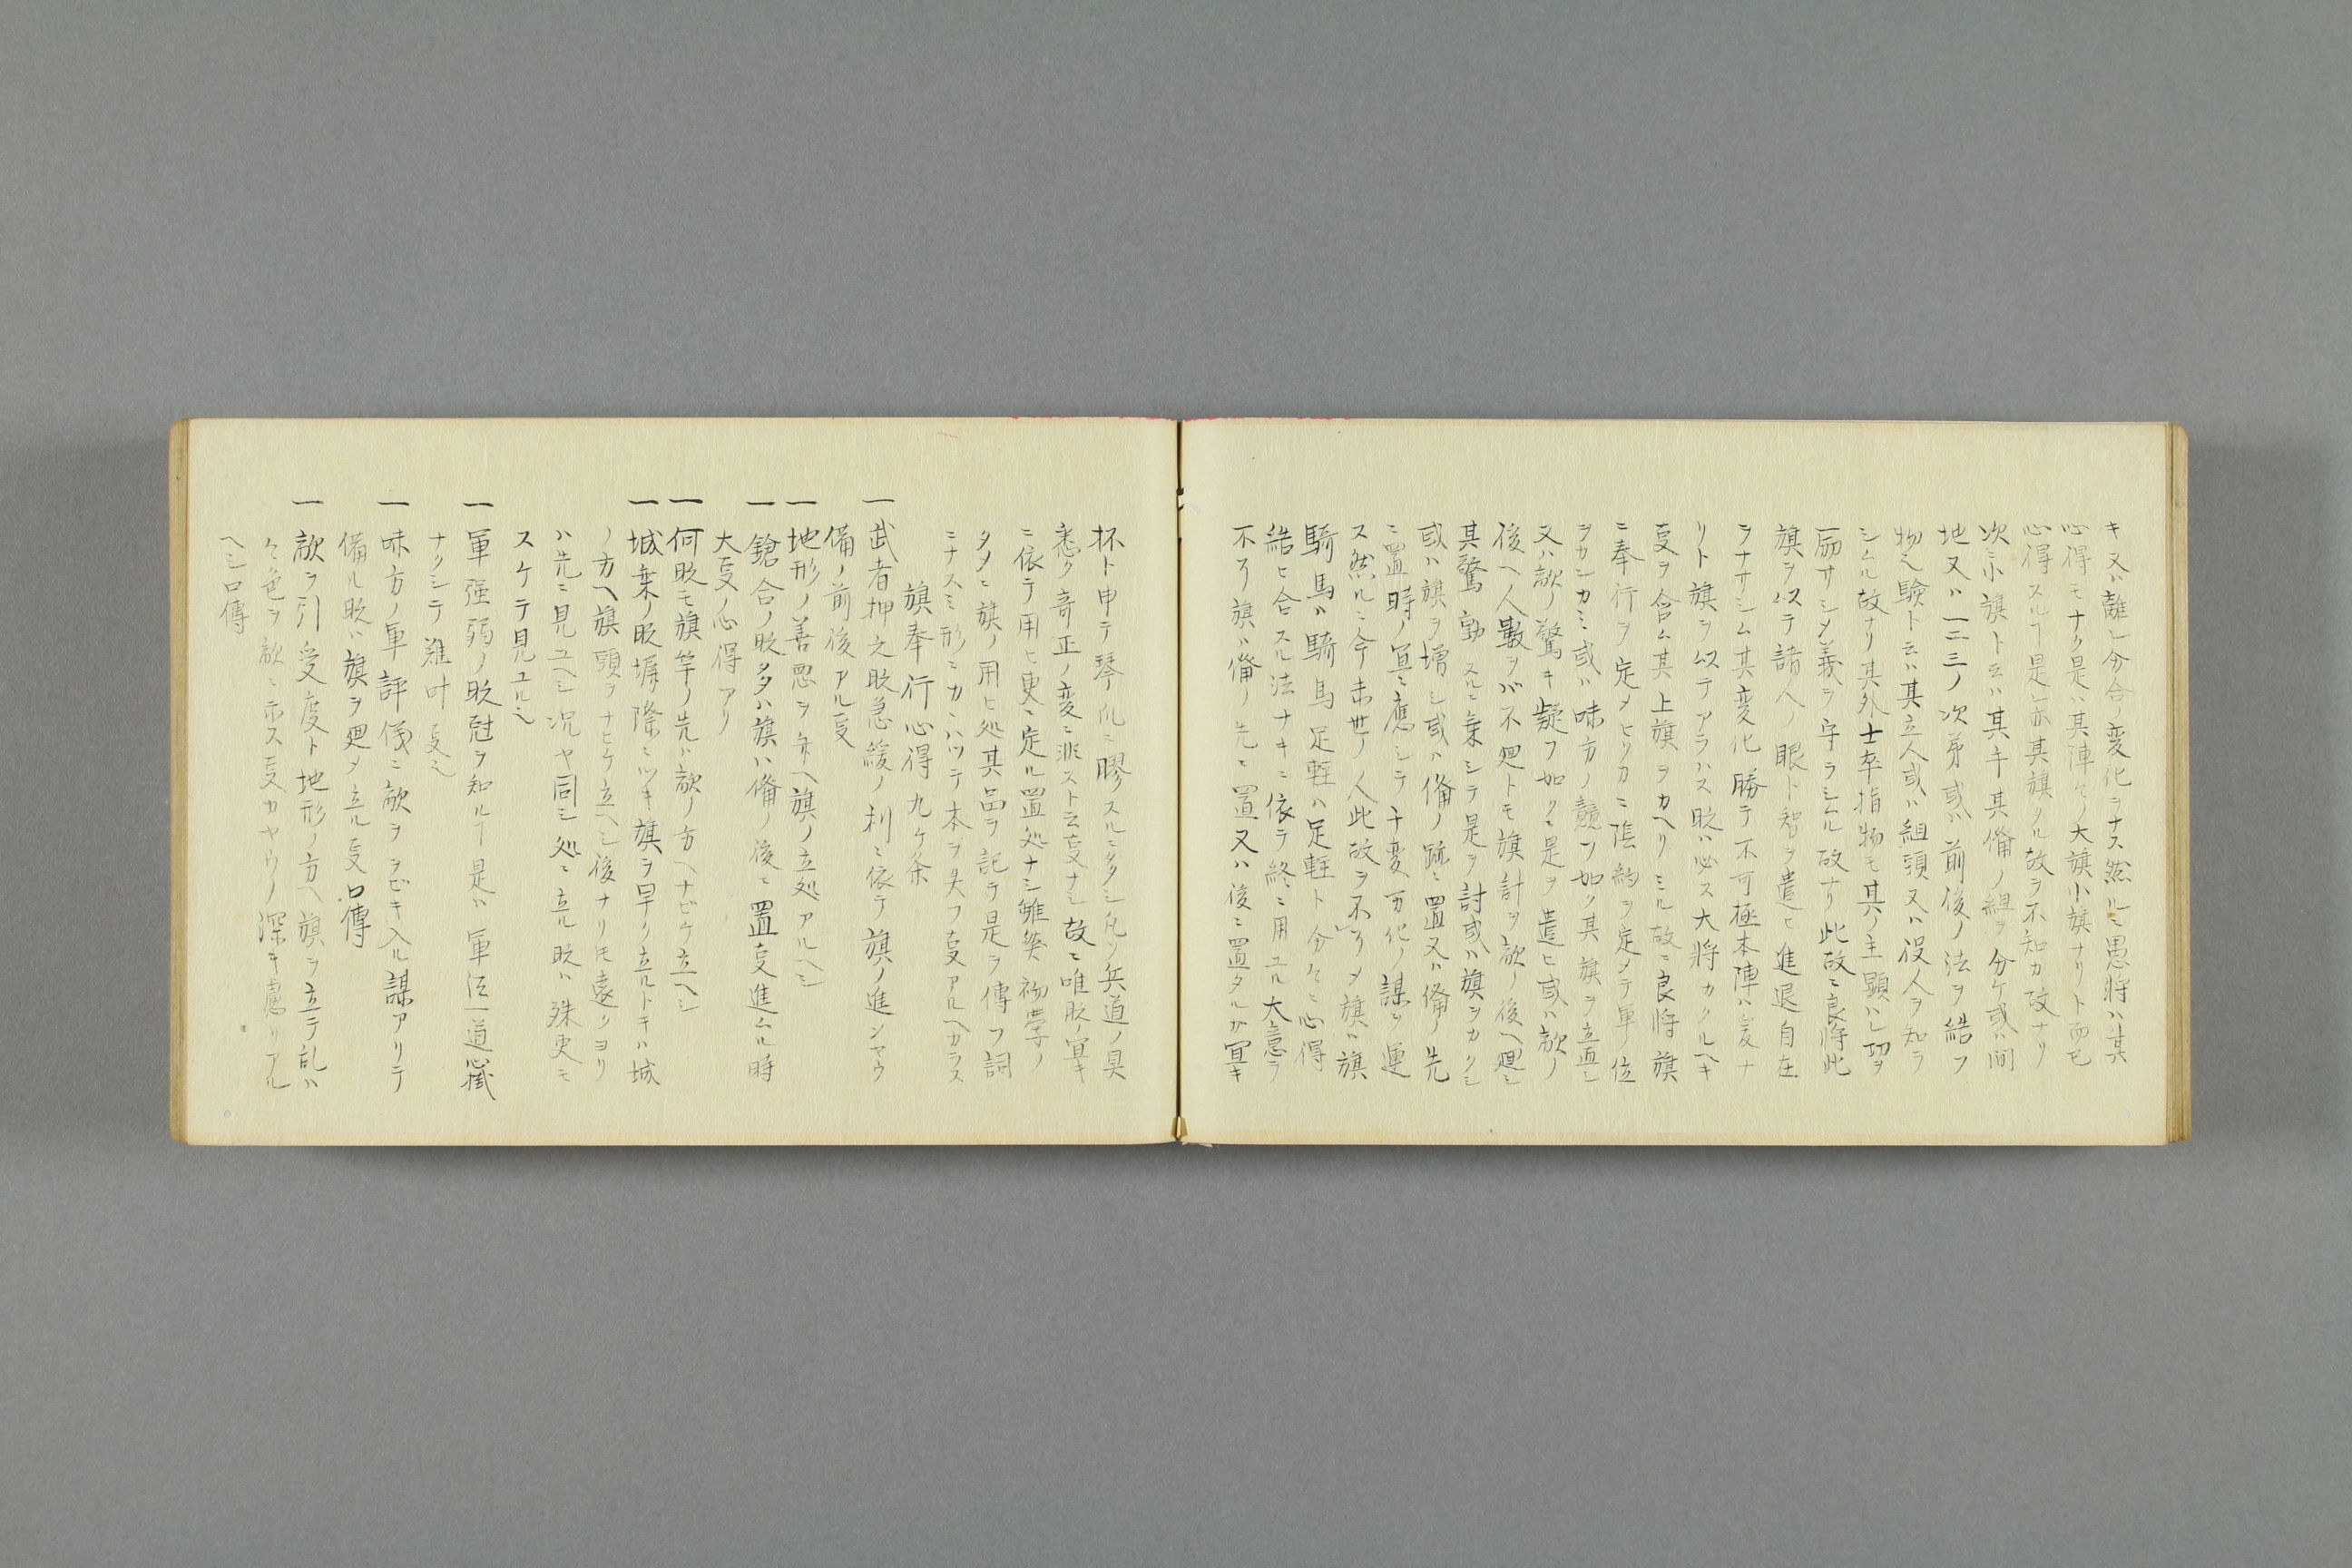 キ又ハ離レ分合ノ変化ヲナス然ルニ愚将ハ其
心得モナク是ハ其陣々ノ大旗小旗ナリト而已
心得スルヿ是亦其旗タル故ヲ不知カ故ナリ
次ニ小旗ト云ハ其手其備ノ組ヲ分ケ或ハ間
地又ハ一二三ノ次第或ハ前後ノ法ヲ結フ
物之験ト云ハ其立人或ハ組頭又ハ役人ヲ知ラ
シムル故ナリ其外士卒指物モ其ノ主顕ハレ功ヲ
励サシメ義ヲ守ラシムル故ナリ此故ニ良将此
旗ヲ以テ諸人ノ眼ト智ヲ遣ヒ進退自在
ヲナサシム其変化勝テ不可極本陣ハ爰ナ
リト旗ヲ以テアラハス時ハ必ス大将カクルヘキ
叓ヲ含ム其上旗ヲカヘリミル故ニ良将旗
ニ奉行ヲ定メヒソカニ陰約ヲ定メテ軍ノ位
ヲカンカミ或ハ味方ノ競フ如ク其旗ヲ立直シ
又ハ敵ノ驚キ疑フ如クニ是ヲ遣ヒ或ハ敵ノ
後ヘ人數ヲバ不廻トモ旗計ヲ敵ノ後ヘ廻シ
其驚動スルニ乗シテ是ヲ討或ハ旗ヲカクシ
或ハ旗ヲ増シ或ハ備ノ跡ニ置又ハ備ノ先
ニ置時ノ宜ニ應シテ千変万化ノ謀ヲ運
ス然ルニ今末世ノ人此故ヲ不メ旗ハ旗
騎馬ハ騎馬足軽ハ足軽ト分々ニ心得
結ヒ合スル法ナキニ依テ終ニ用ユル大意ヲ
不ス旗ハ備ノ先ニ置又ハ後ニ置タルカ冝キ
杯ト申テ琴ノ凡ニ膠スルニ多シ凡ソ兵道ノ具
悉ク奇正ノ変ニ非スト云叓ナシ故ニ唯時ノ冝キ
ニ依テ用ヒ更ニ定ル置処ナシ雖然初学ノ
タメニ旗ノ用ヒ処其品ヲ記テ是ヲ傳フ詞
ニナスミ形ニカヽハツテ本ヲ失フ叓アルヘカラス
旗奉行心得九ケ条
一 武者押之時急緩ノ利ニ依テ旗ノ進シヤウ
備ノ前後アル叓
一 地形ノ善悪ヲ弁ヘ旗ノ立処アルヘシ
一 鎗合ノ時多ハ旗ハ備ノ後ニ置叓進ムル時
大叓ノ心得アリ
一 何時モ旗竿ノ先ハ敵ノ方ヘナビケ立ヘシ
一 城乗ノ時塀際ニツキ旗ヲ早ク立ルトキハ城
ノ方ヘ旗頭ヲナヒケ立ヘシ後ナリ圧遠クヨリ
ハ先ニ見ユヘシ況ヤ同シ処ニ立ル時ハ殊更モ
スケテ見ユル之
一 軍强弱ノ時冠ヲ知ルヿ是ハ軍法一道懺
ナクシテ難叶叓之
一 味方ノ軍評儀ニ敵ヲヲビキ入ル謀アリテ
備ル時ハ旗ヲ廻メ立ル叓口傳
一 敵ヲ引受度ト地形ノ方ヘ旗ヲ立テ乱ハ
々色ヲ敵ニ示ス叓カヤウノ深キ慮リアル
ヘシ口傳